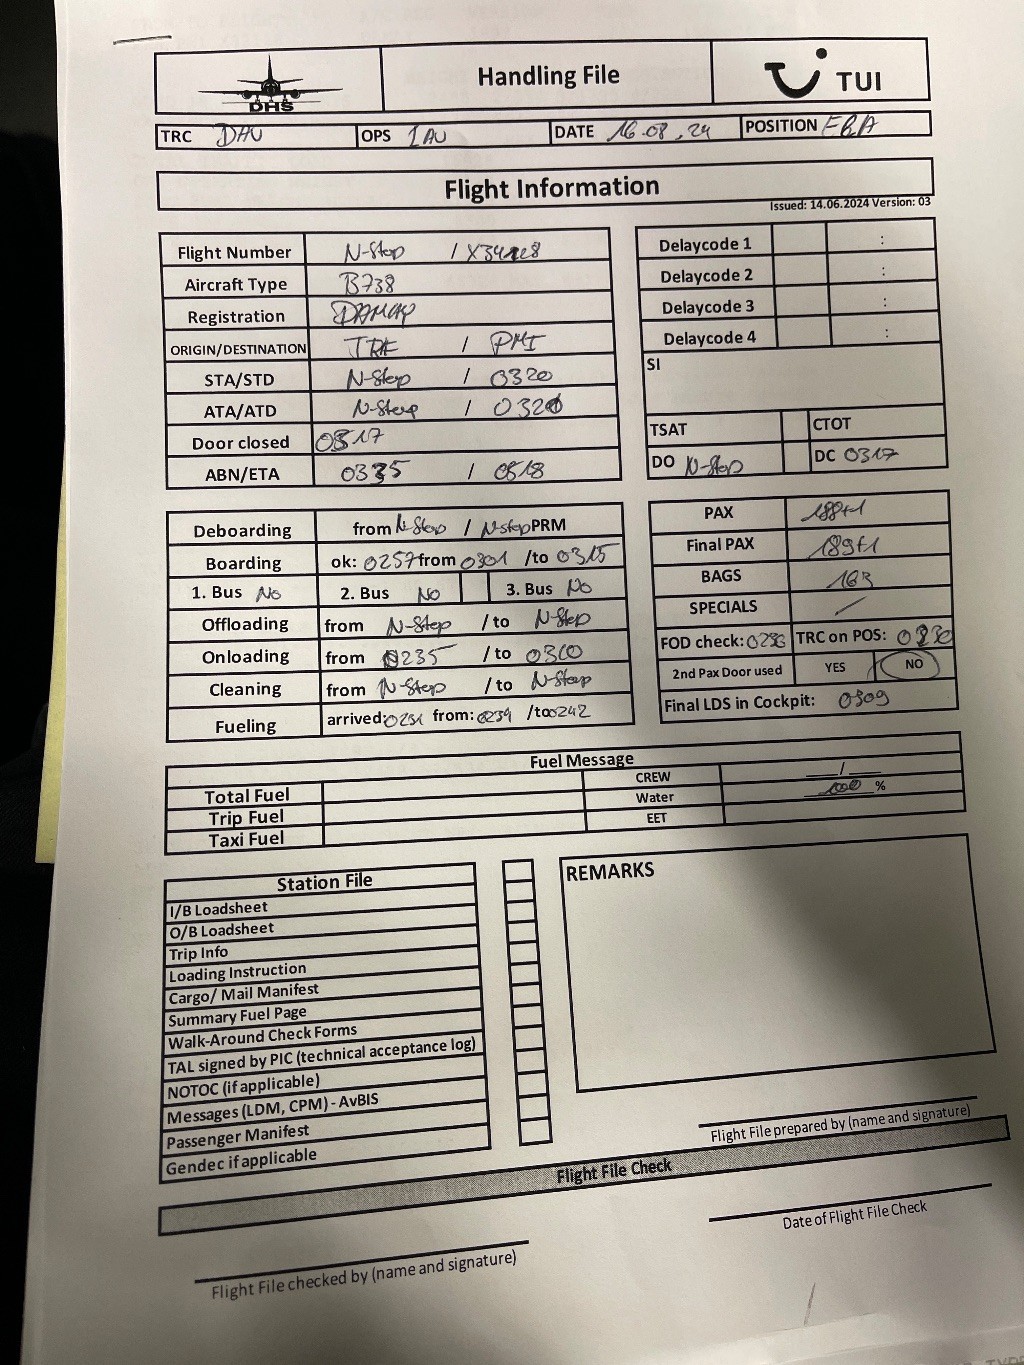 DHS
Handling File
TUI
TRC DHU OPS IAU DATE 16.08.24 POSITION
Flight Information
Issued: 14.06.2024 Version: 03
Flight Number N-Stop /
Aircraft Type B738
Registration
ORIGIN/DESTINATION / PMI
STA/STD N-Stop / 0320
ATA/ATD N-Stop /
Door closed 0317
ABN/ETA 0335 / 0518
Delaycode 1 :
Delaycode 2 :
Delaycode 3 :
Delaycode 4 :
SI
TSAT CTOT
DO N-Stop DC 0317
Deboarding from N-Stop / N-Stop PRM
Boarding ok: 0257 from 0301 /to 0315
1. Bus No 2. Bus No 3. Bus No
Offloading from N-Stop / to N-Stop
Onloading from 0235 / to 0310
Cleaning from N-Stop / to N-Stop
Fueling arrived: 0231 from: 0239 /to 0242
PAX 188+1
Final PAX 189+1
BAGS 163
SPECIALS /
FOD check: TRC on POS:
2nd Pax Door used YES NO
Final LDS in Cockpit: 0309
Fuel Message
Total Fuel CREW /
Trip Fuel Water 100 %
Taxi Fuel EET
Station File
I/B Loadsheet
O/B Loadsheet
Trip Info
Loading Instruction
Cargo/ Mail Manifest
Summary Fuel Page
Walk-Around Check Forms
TAL signed by PIC (technical acceptance log)
NOTOC (if applicable)
Messages (LDM, CPM) - AvBIS
Passenger Manifest
Gendec if applicable
REMARKS
Flight File prepared by (name and signature)
Flight File Check
Date of Flight File Check
Flight File checked by (name and signature)